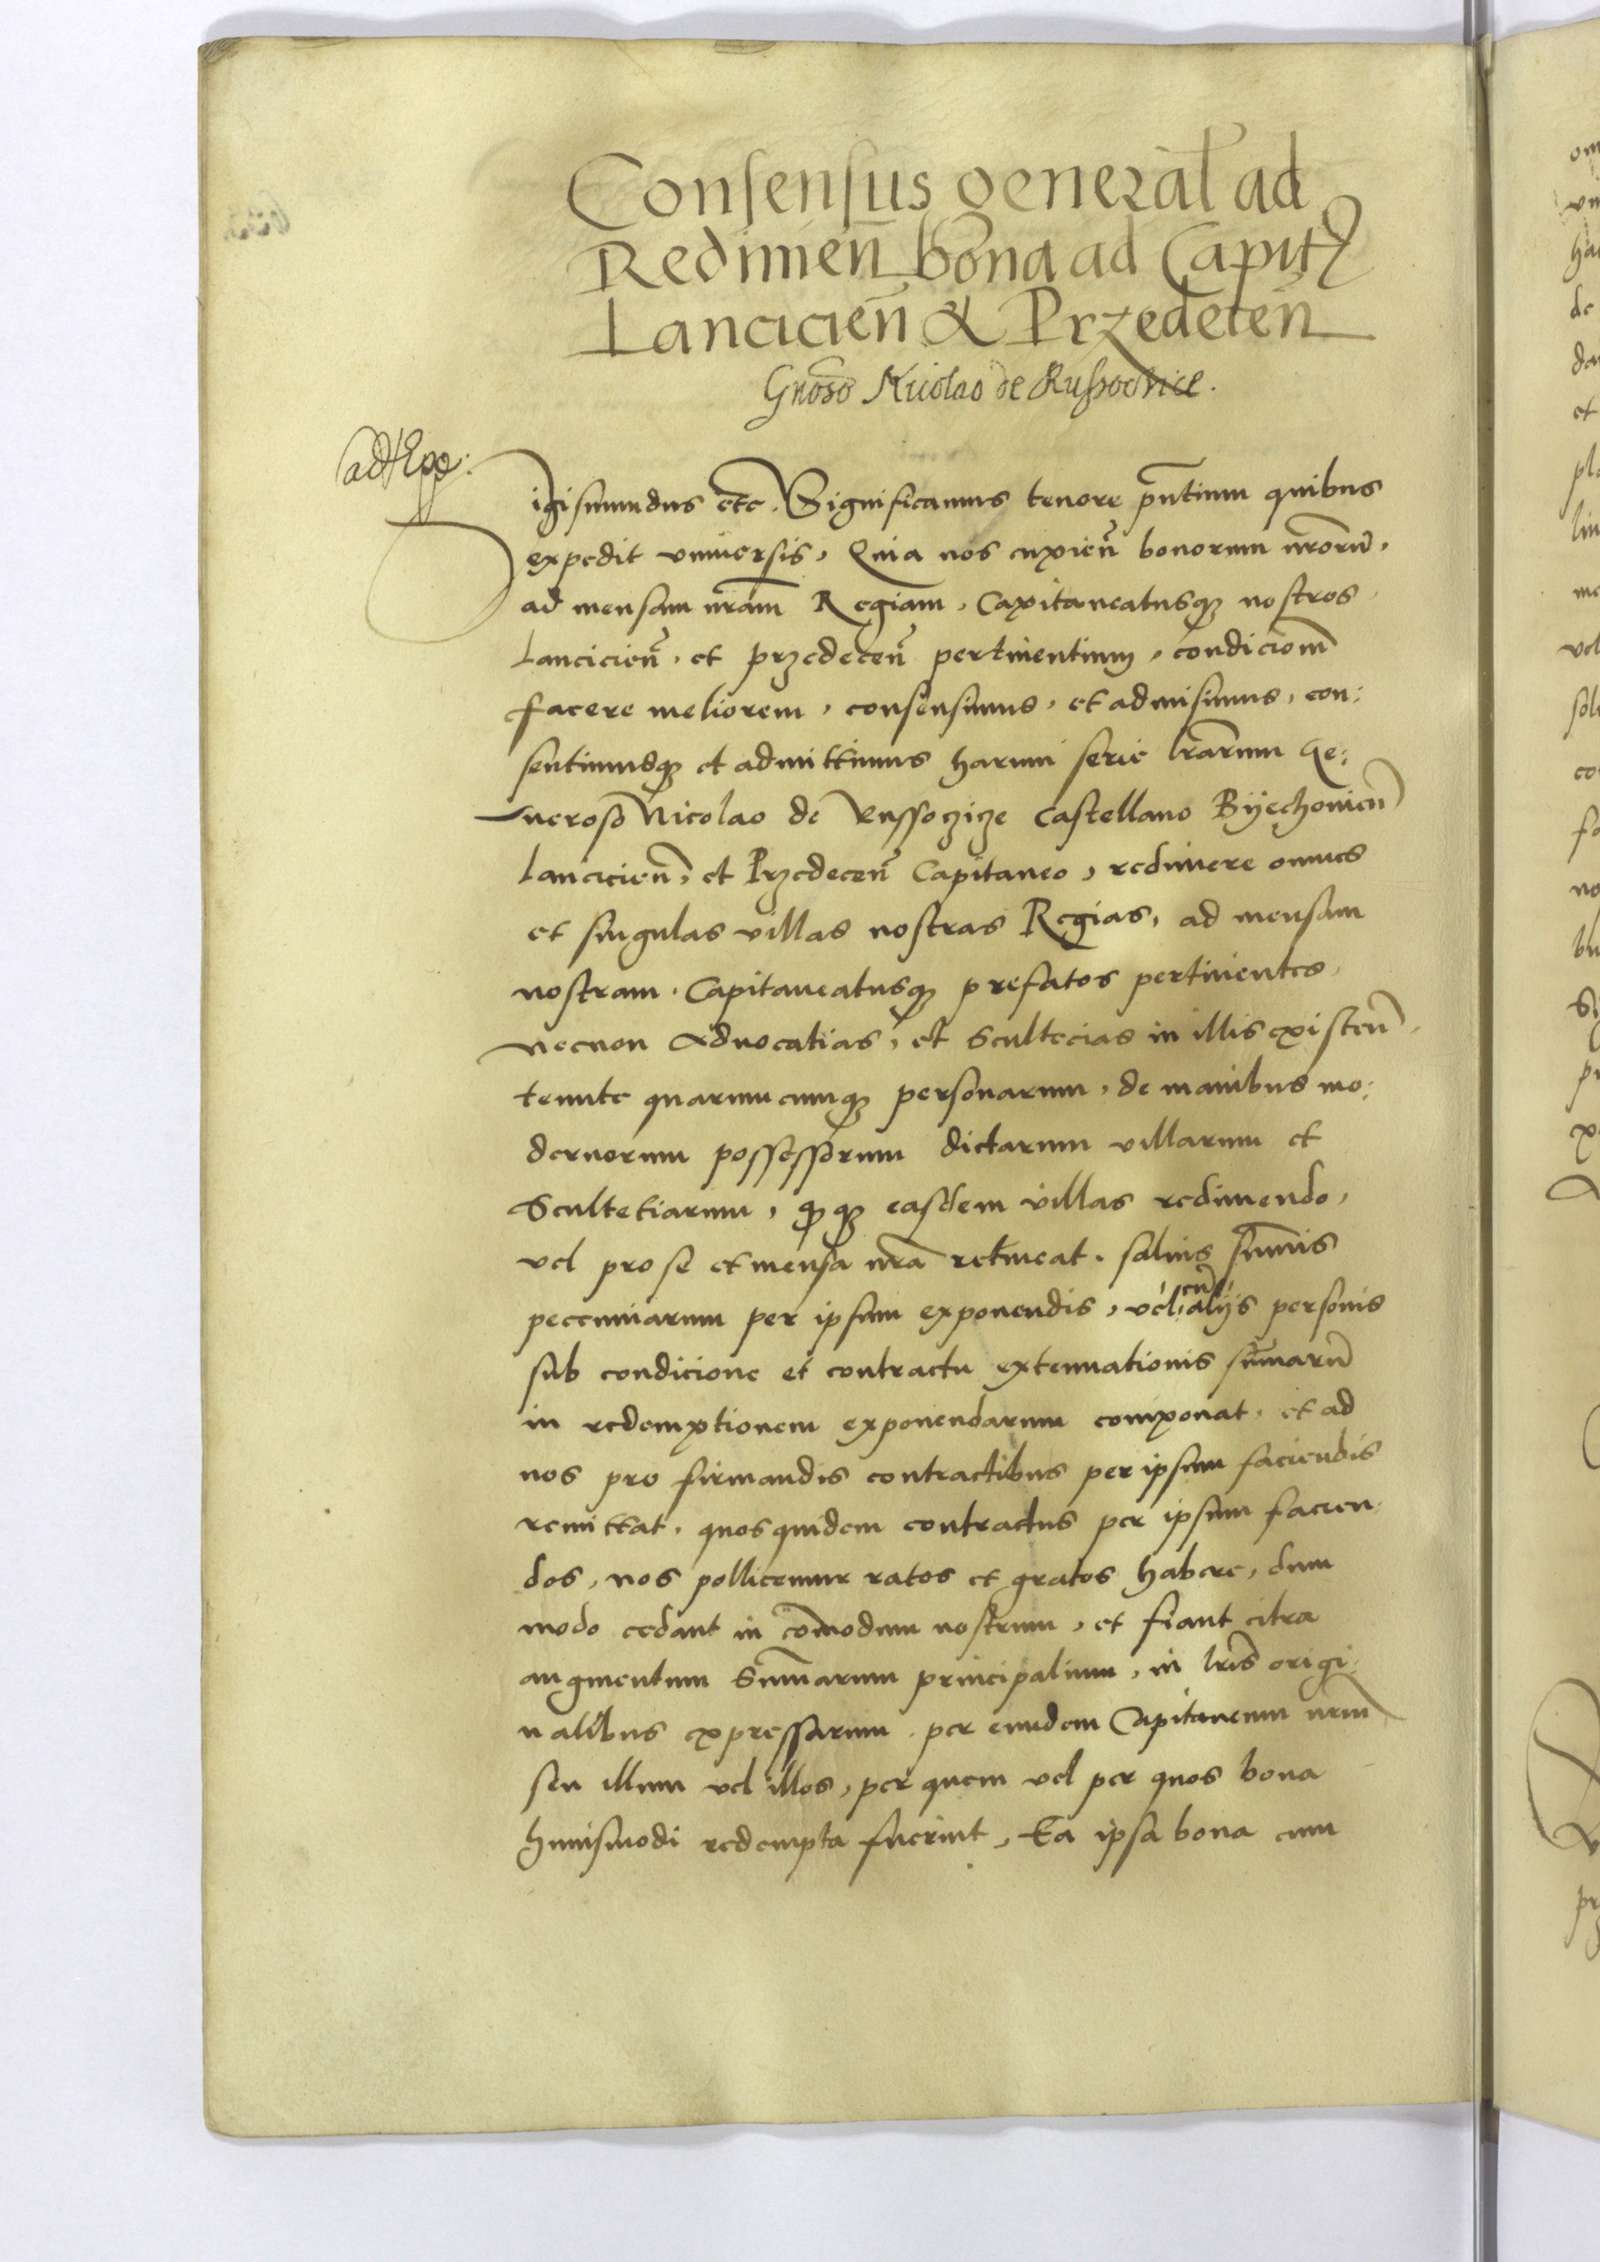 Consensus general ad
Redimen̄ bona ad Capit
Lancicien̄ & Przedecen̄
Gnoso Nicolao de Russocice.
igismundus etc. Significamus tenore pn̄tium quibus
expedit vniuersis, Quia nos cupien̄ bonorum nr̄orū,
ad mensam nr̄am Regiam, Capitaneatusq3 nostros
Lancicien̄, et przedecen̄ pertinentium, condicionē
facere meliorem, consensimus, et admisimus, con:
sentimusq3 et admittimus harum serie lr̄arum Ge:
neroso Nicolao de Russoczicze Castellano Byechouien̄
Lancicien̄, et Przedecen̄ Capitaneo, redimere omnes
et singulas villas nostras Regias, ad mensam
nostram, Capitaneatusq3 prefatos pertinentes,
necnon Aduocatias, et Scultecias in illis existen̄
tenute quarumcumq3 personarum, de manibus mo:
dernorum possessorum dictarum villarum et
Scultetiarum, q3 easdem villas redimendo,
vel pro se et mensa nr̄a retineat, saluis sum̄is
peccuniarum per ipsum exponendis, vel cū alijs personis
sub condicione et contractu extenuationis sum̄arū
in redemptionem exponendarum componat, et ad
nos pro firmandis contractibus per ipsum faciendis
remittat, quosquidem contractus per ipsum facien:
dos, nos pollicemur ratos et gratos habere, dum
modo cedant in com̄odum nostrum, et fiant citra
augmentum Sum̄arum principalium, in lr̄is origi:
nalibus expressarum, per eundem Capitaneum nr̄um
seu illum vel illos, per quem vel per quos bona
huiusmodi redempta fuerint, Ea ipsa bona cum